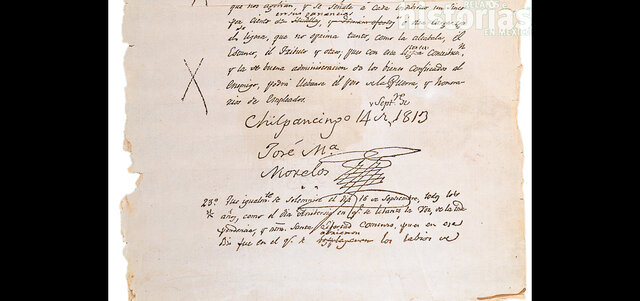 RELATOS
historias
EN MÉXICO
que nos agovian, y se señale á cada individuo un cinco
en sus ganancias
por ciento de semillas, y demas efectos
ligera, que no oprima tanto, como la alcabala, el
Estanco, el Tributo y otros, pues con esta ligera contribucn.
y la buena administracion de los bienes confiscados al
Enemigo, podrá llebarse el peso de la Guerra, y honora-
rios de Empleados.
Septre. de
Chilpancingo 14 de 1813
José Ma.
Morelos
23º. Que igualmte. se solemnize el dia 16 de Septiembre, todos los
años, como el dia Aniversario en qe. se levantó la Voz de la Inde-
pendencia, y ntra. Santa Libertad comenzó, pues en ese
Dia fue en el qe. se desplegaron los labios de